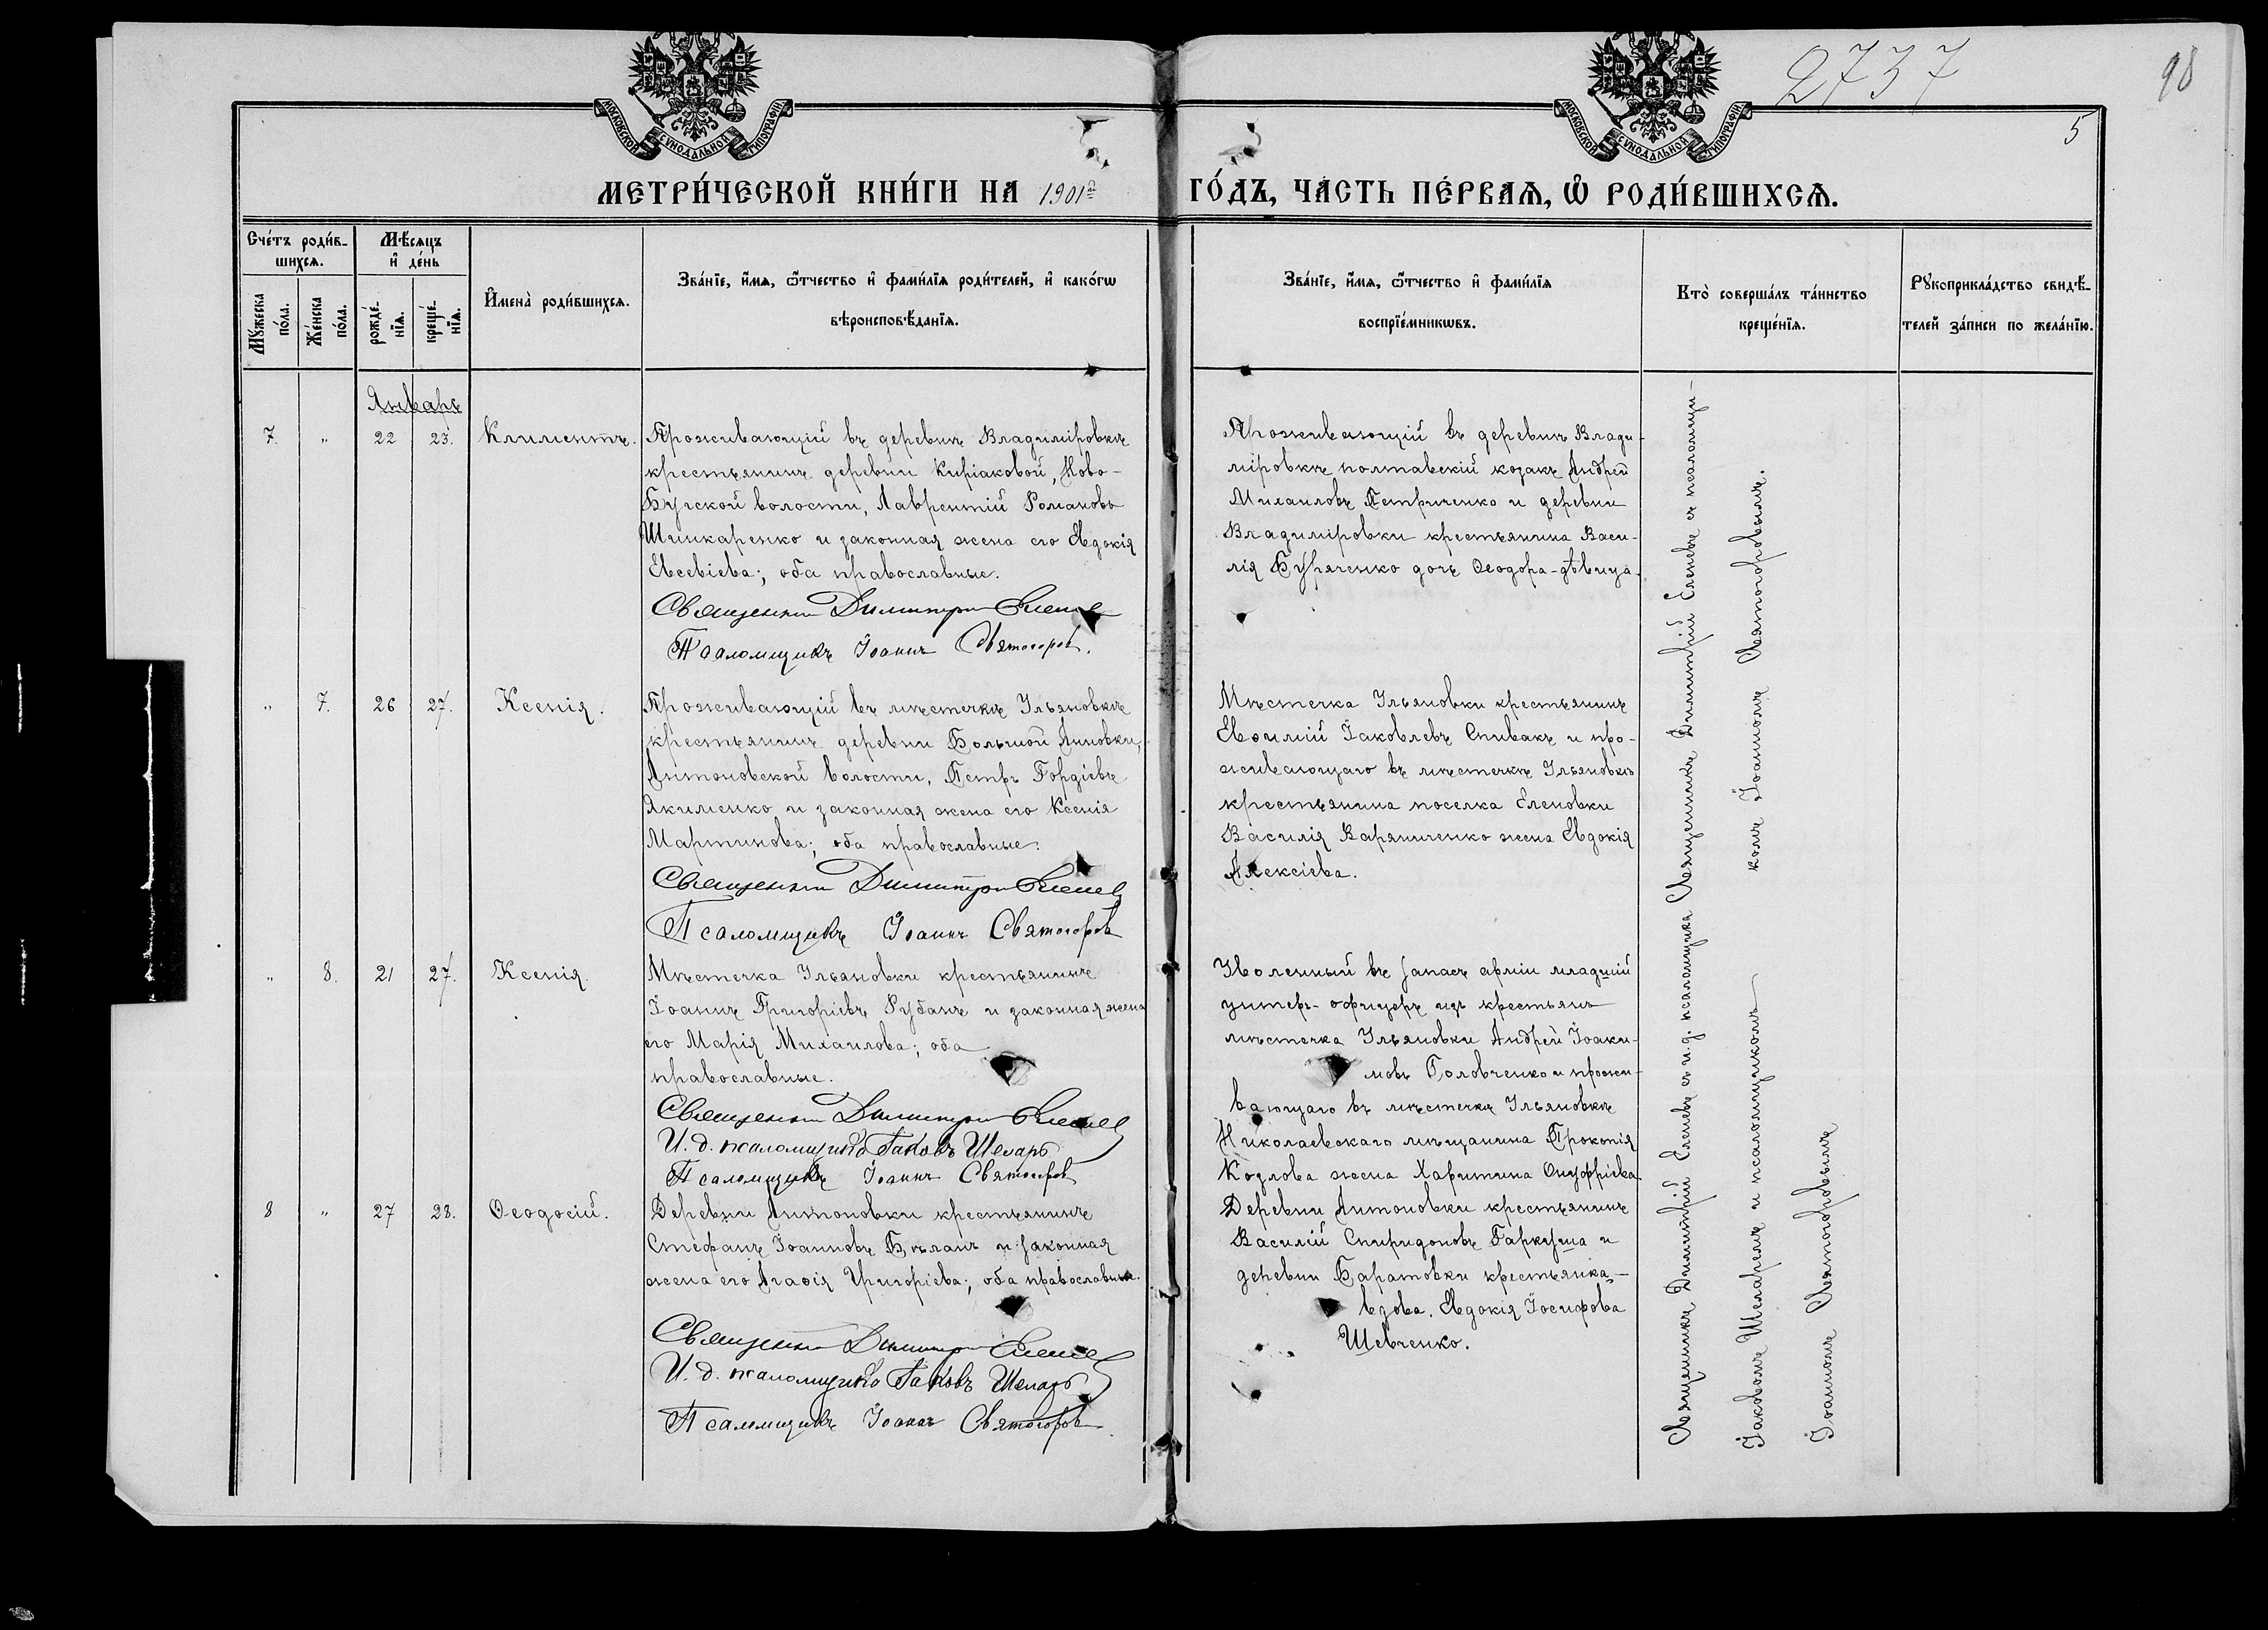 2737
98
5
МОСКОВСКОЙ СѴНОДАЛЬНОЙ ТИПОГРАФІИ
МОСКОВСКОЙ СѴНОДАЛЬНОЙ ТИПОГРАФІИ
МЕТРИ́ЧЕСКОЙ КНИ́ГИ НА 1901й ГО́ДЪ, ЧА́СТЬ ПЕ́РВАѦ, Ѽ РОДИ́ВШИХСѦ.
Сче́тъ роди́в-
шихсѧ.
Мꙋ́жеска
по́ла.
Же́нска
по́ла.
Мѣ́сѧцъ
и҆ де́нь
рожде́-
нїѧ.
креще́-
нїѧ.
И҆мена̀ роди́вшихсѧ.
Зва́нїе, и҆́мѧ, ѻ҆́тчество и҆ фами́лїѧ роди́телей, и҆ како́гѡ
вѣроисповѣ́данїѧ.
Зва́нїе, и҆́мѧ, ѻ҆́тчество и҆ фами́лїѧ
воспрїе́мникѡвъ.
Кто̀ соверша́лъ та́инство
креще́нїѧ.
Рꙋкоприкла́дство свидѣ́-
телей за́писи по жела́нїю.
Январь
7. " 22 23. Климентъ.
Проживающій въ деревнѣ Владиміровкѣ
крестьянинъ деревни Киріаковой, Ново-
Бугской волости, Лаврентій Романовъ
Шинкаренко и законная жена его Евдокія
Евсевіева; оба православные.
Священникъ Димитрій Еленевъ
Псаломщикъ Іоаннъ Святогоровъ.
Проживающій въ деревнѣ Влади-
міровкѣ полтавскій козакъ Андрей
Михаиловъ Петриченко и деревни
Владиміровки крестьянина Васи-
лія Буряченко дочь Ѳеодора-дѣвица.
" 7. 26 27. Ксенія.
Проживающій въ мѣстечкѣ Ульяновкѣ
крестьянинъ деревни Большой Анновки,
Антоновской волости, Петръ Гордіевъ
Якименко и законная жена его Ксенія
Мартинова; оба православные.
Священникъ Димитрій Еленевъ
Псаломщикъ Іоаннъ Святогоровъ
Мѣстечка Ульяновки крестьянинъ
Евѳимій Іаковлевъ Спивакъ и про-
живающаго въ мѣстечкѣ Ульяновкѣ
крестьянина поселка Еленовки
Василія Варяниченко жена Евдокія
Алексіева.
" 8. 21 27. Ксенія
Мѣстечка Ульяновки крестьянинъ
Іоаннъ Григоріевъ Рубанъ и законная жена
его Марія Михаилова; оба
православные.
Священникъ Димитрій Еленевъ
И. д. псаломщика Іаковъ Шеларь
Псаломщикъ Іоаннъ Святогоровъ
Уволенный въ запасъ арміи младшій
унтеръ-офицеръ изъ крестьянъ
мѣстечка Ульяновки Андрей Іоаки-
мовъ Головченко и прожи-
вающаго въ мѣстечкѣ Ульяновкѣ
Николаевскаго мѣщанина Прокопія
Козлова жена Харитина Онуфріева
8 " 27 28. Ѳеодосій.
Деревни Антоновки крестьянинъ
Стефанъ Іоанновъ Бѣланъ и законная
жена его Агаѳія Григоріева; оба православные.
Священникъ Димитрій Еленевъ
И. д. псаломщика Іаковъ Шеларь
Псаломщикъ Іоаннъ Святогоровъ
Деревни Антоновки крестьянинъ
Василій Спиридоновъ Гаркуша и
деревни Баратовки крестьянка-
вдова Евдокія Іосифова
Шевченко.
Священникъ Димитрій Еленевъ съ псаломщи-
комъ Іоанномъ Святогоровымъ.
Священникъ Димитрій Еленевъ съ и.д. псаломщика
Іаковомъ Шеларемъ и псаломщикомъ
Іоанномъ Святогоровымъ